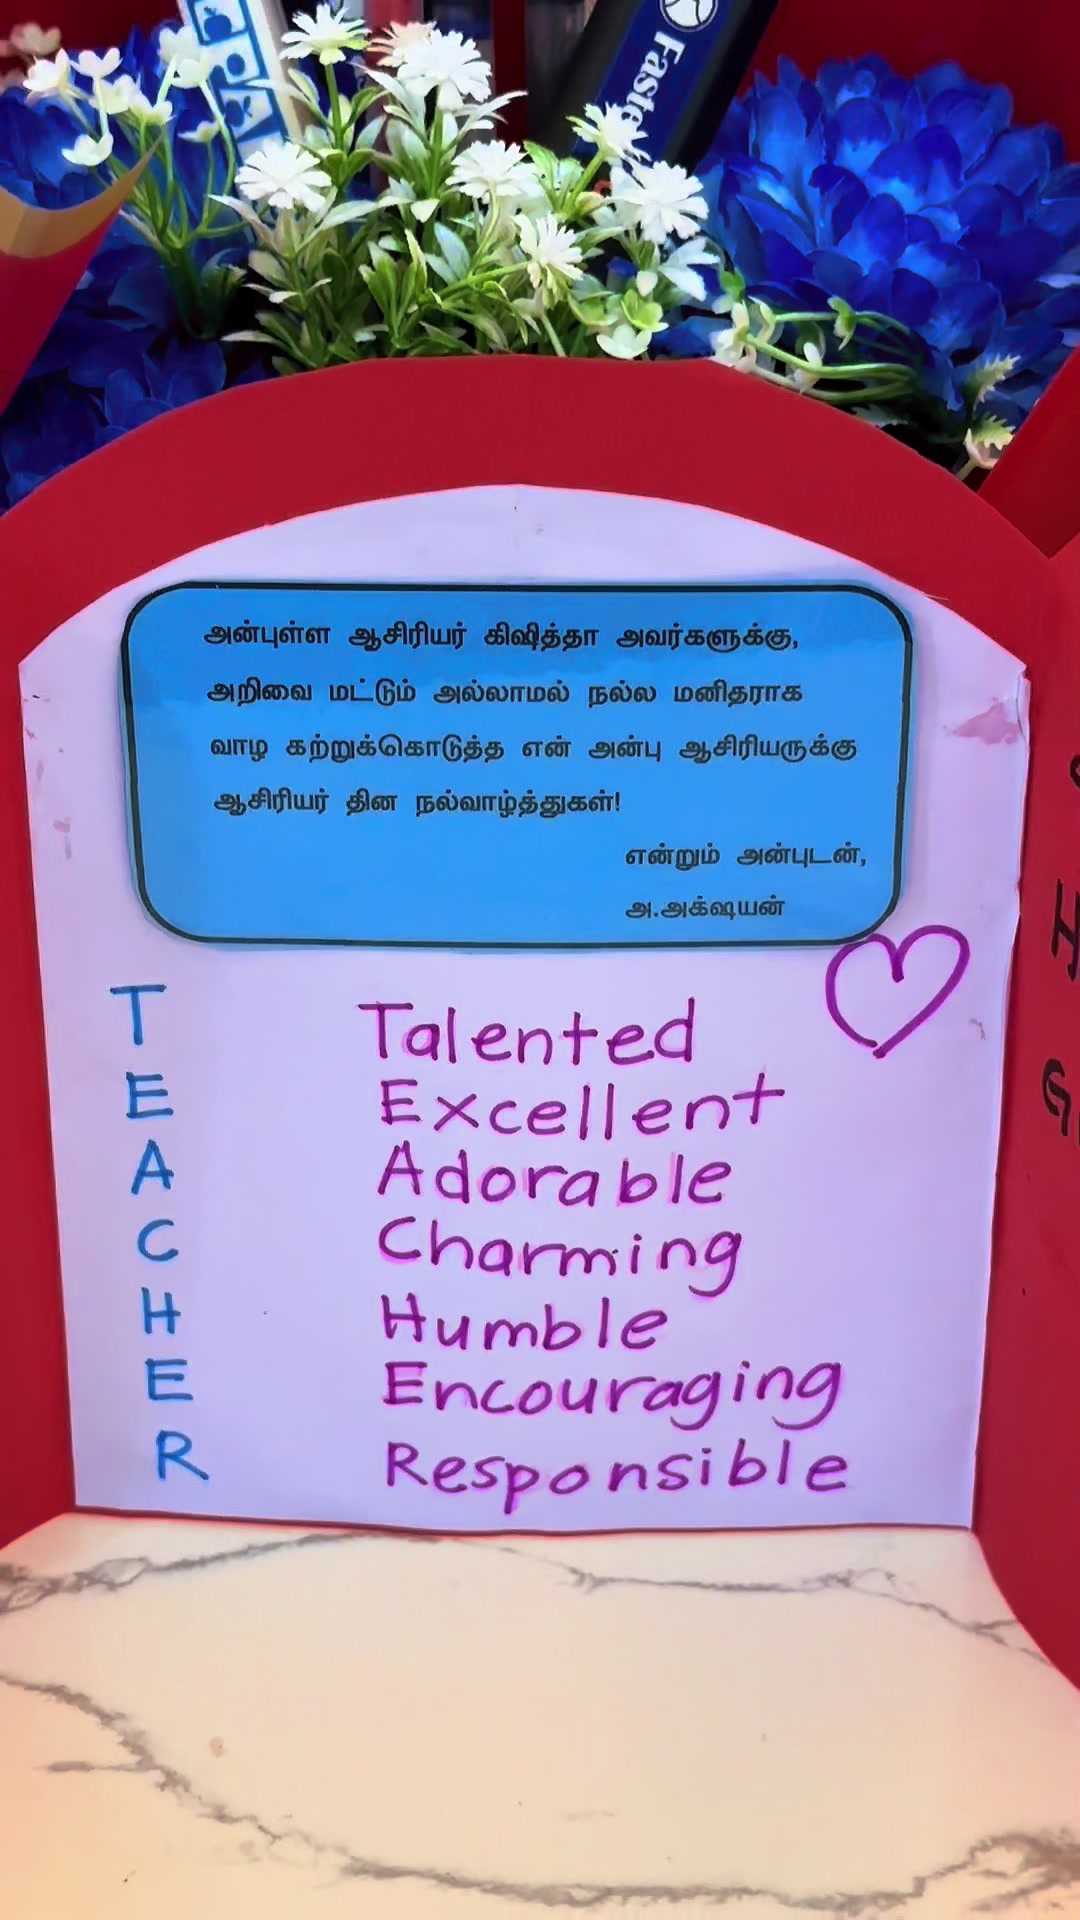 Faste
அன்புள்ள ஆசிரியர் கிஷித்தா அவர்களுக்கு,
அறிவை மட்டும் அல்லாமல் நல்ல மனிதராக
வாழ கற்றுக்கொடுத்த என் அன்பு ஆசிரியருக்கு
ஆசிரியர் தின நல்வாழ்த்துகள்!
என்றும் அன்புடன்,
அ.அக்ஷயன்
T Talented
E Excellent
A Adorable
C Charming
H Humble
E Encouraging
R Responsible